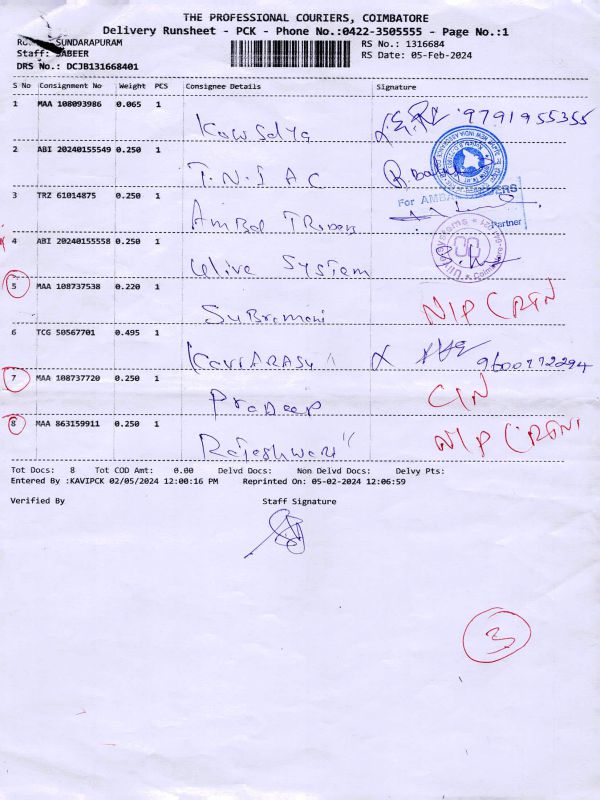 THE PROFESSIONAL COURIERS, COIMBATORE
Delivery Runsheet - PCK - Phone No.:0422-3505555 - Page No.:1
SUNDARAPURAM RS No.: 1316684
Staff: SABEER RS Date: 05-Feb-2024
DRS No.: DCJB131668401
S No Consignment No Weight PCS Consignee Details Signature
1 MAA 108093986 0.065 1 Kowsalya 9791955355
2 ABI 20240155549 0.250 1 T.N.I AC
3 TRZ 61014875 0.250 1 Ambal Traders
For AMBAL TRADERS
Partner
4 ABI 20240155558 0.250 1 Ulive System
5 MAA 108737538 0.220 1 Subramani N/P
6 TCG 50567701 0.495 1 Kaviarasu 9600772294
7 MAA 108737720 0.250 1 Pradeep C/N
8 MAA 863159911 0.250 1 Rajeshwari N/P
Tot Docs: 8 Tot COD Amt: 0.00 Delvd Docs: Non Delvd Docs: Delvy Pts:
Entered By :KAVIPCK 02/05/2024 12:00:16 PM Reprinted On: 05-02-2024 12:06:59
Verified By Staff Signature
3